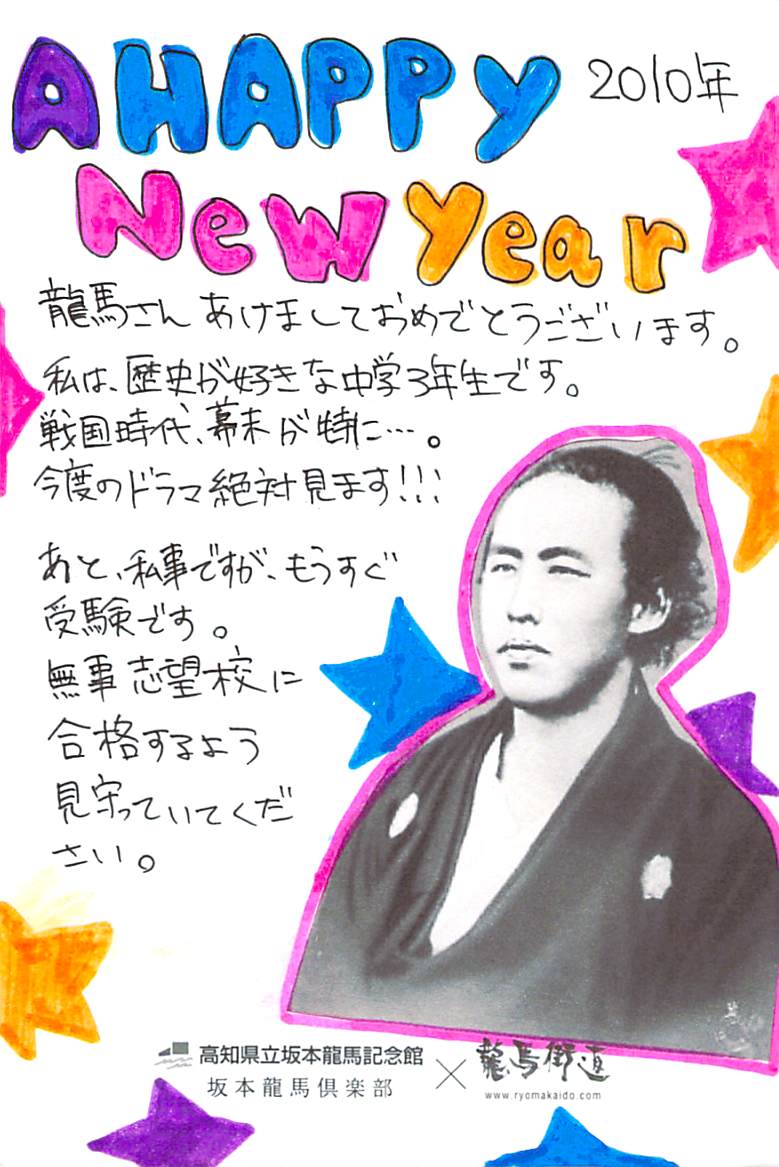 A HAPPY 2010年
New Year
龍馬さん あけましておめでとうございます。
私は、歴史が好きな中学3年生です。
戦国時代、幕末が特に…。
今度のドラマ絶対見ます!!!
あと、私事ですが、もうすぐ
受験です。
無事 志望校に
合格するよう
見守っていてくだ
さい。
高知県立坂本龍馬記念館
坂本龍馬倶楽部
×
龍馬街道
www.ryomakaido.com